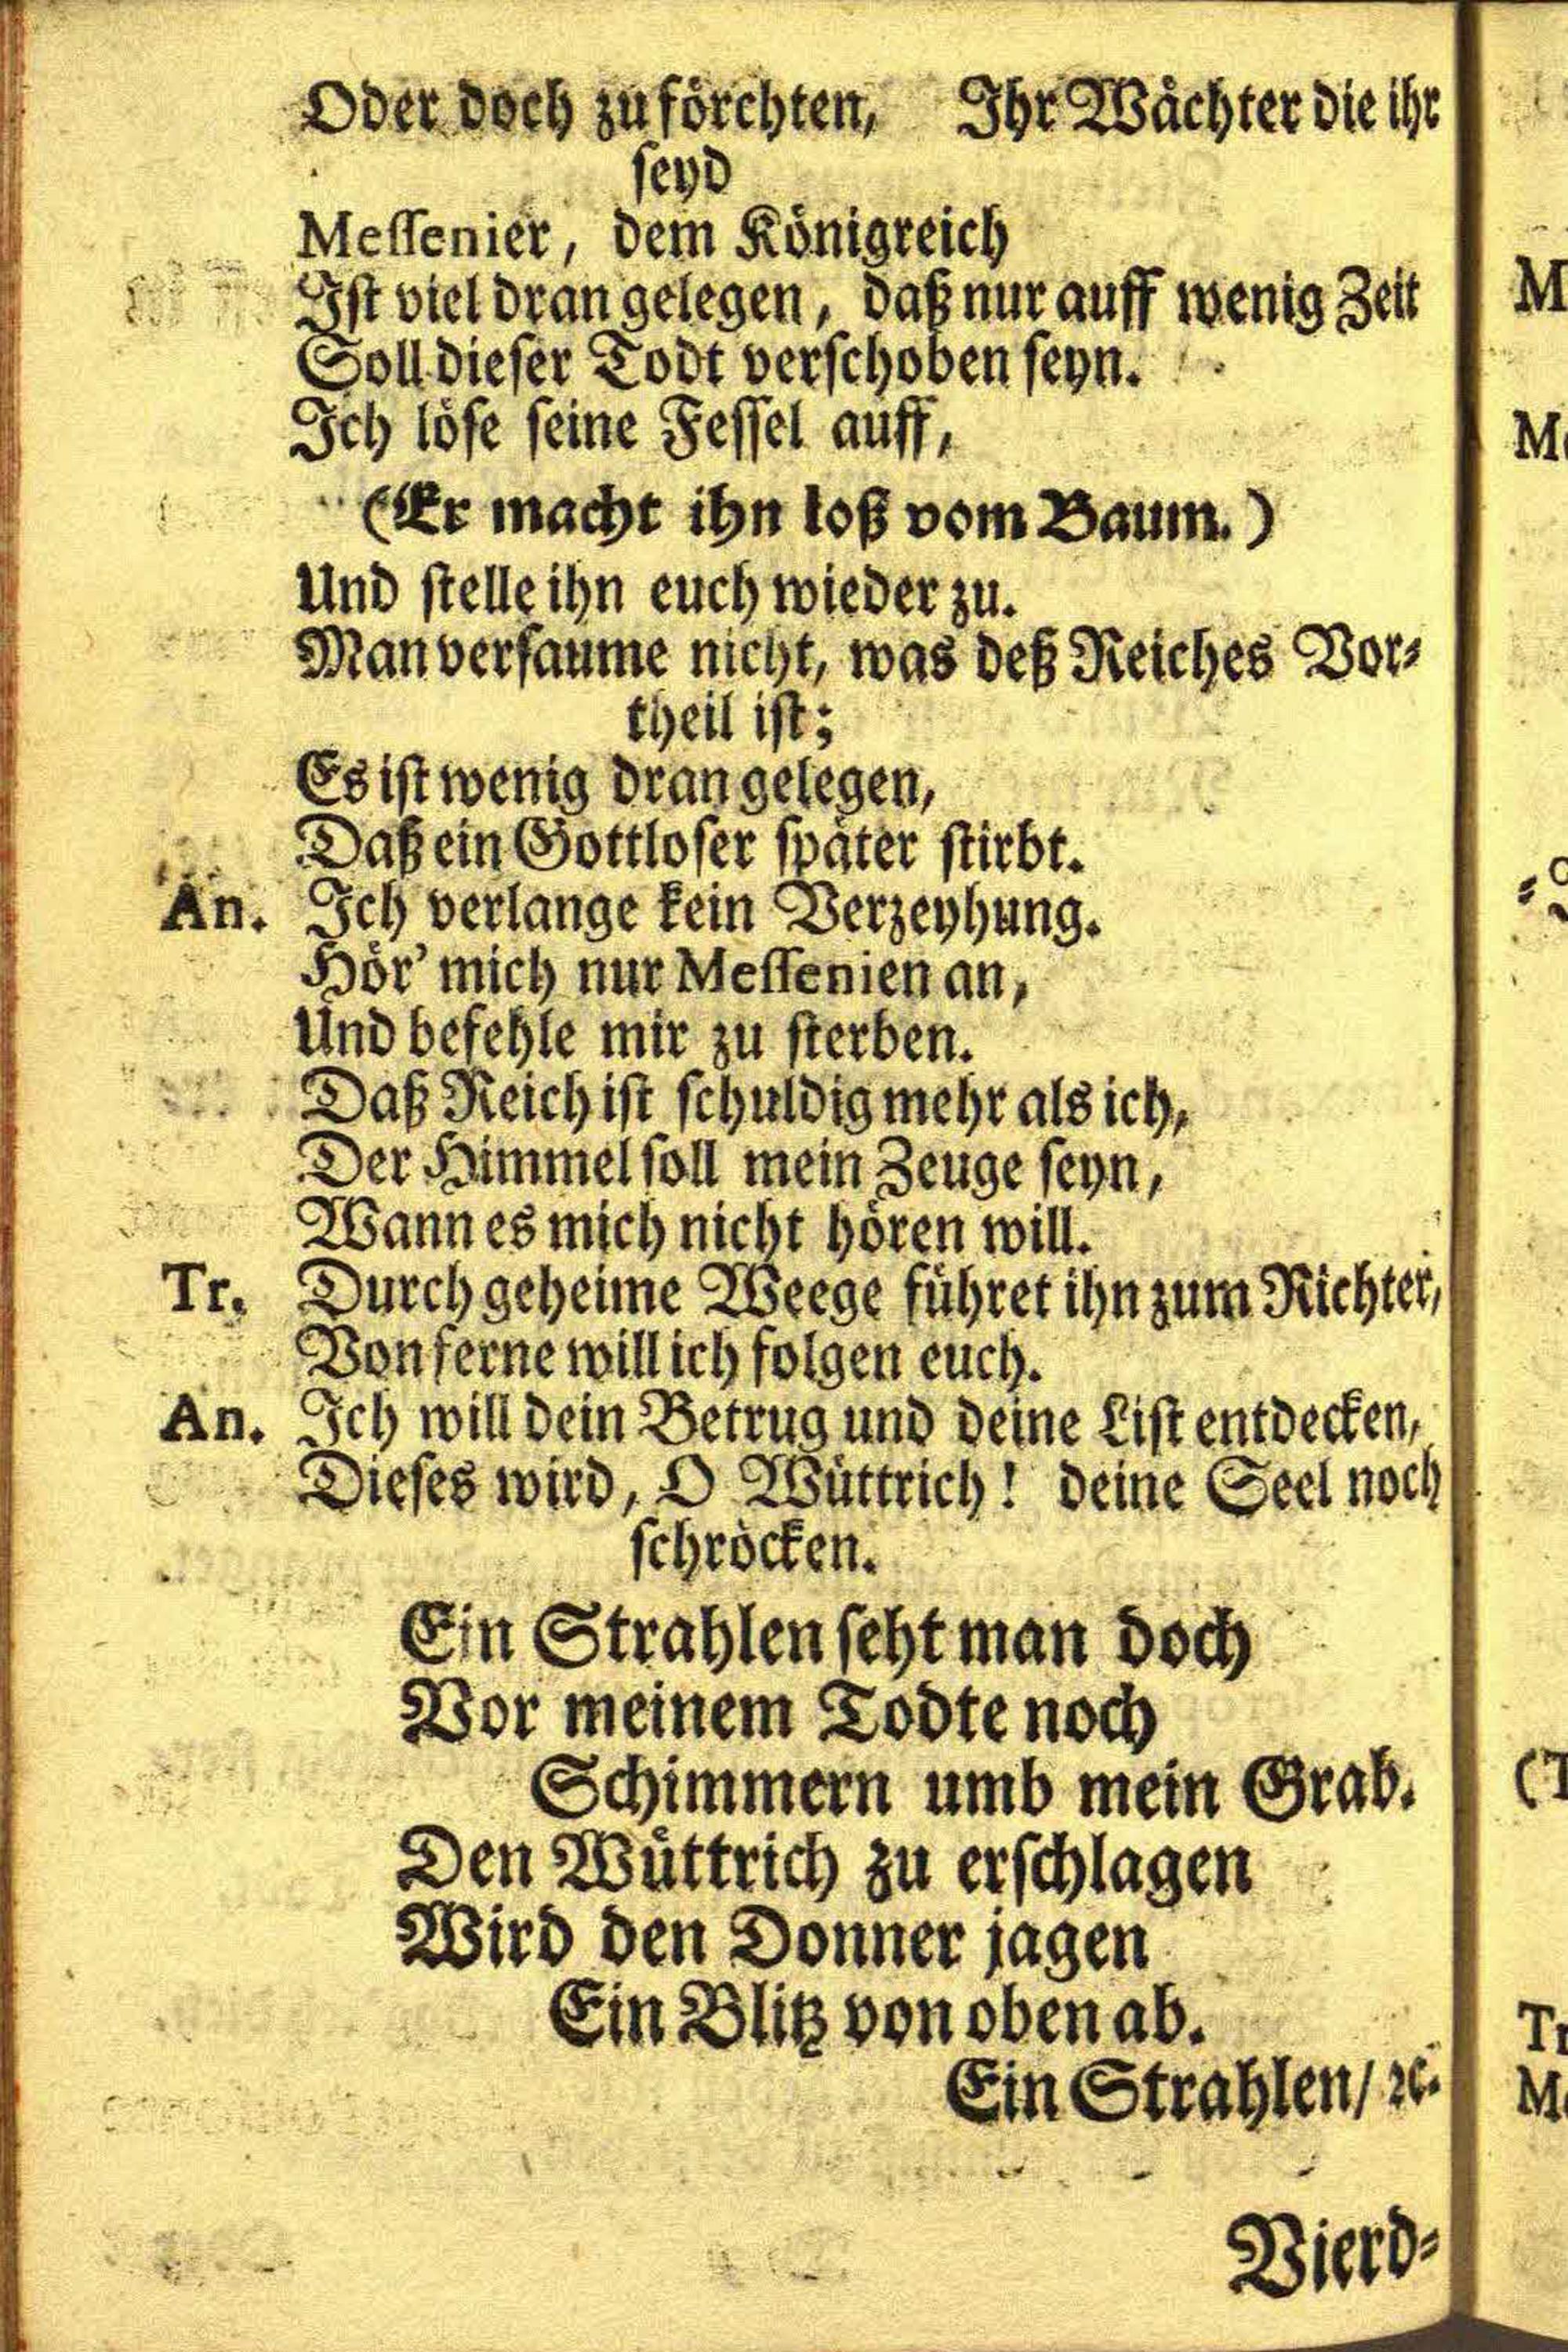 Oder doch zu förchten, Ihr Wächter die ihr
seyd
Messenier, dem Königreich
Ist viel dran gelegen, daß nur auff wenig Zeit
Soll dieser Todt verschoben seyn.
Ich löse seine Fessel auff,
(Er macht ihn loß vom Baum.)
Und stelle ihn euch wieder zu.
Man versaume nicht, was deß Reiches Vor-
theil ist;
Es ist wenig dran gelegen,
Daß ein Gottloser später stirbt.
An. Ich verlange kein Verzeyhung.
Hör' mich nur Messenien an,
Und befehle mir zu sterben.
Daß Reich ist schuldig mehr als ich,
Der Himmel soll mein Zeuge seyn,
Wann es mich nicht hören will.
Tr. Durch geheime Weege führet ihn zum Richter,
Von ferne will ich folgen euch.
An. Ich will dein Betrug und deine List entdecken,
Dieses wird, O Wüttrich! deine Seel noch
schröcken.
Ein Strahlen seht man doch
Vor meinem Todte noch
Schimmern umb mein Grab.
Den Wüttrich zu erschlagen
Wird den Donner jagen
Ein Blitz von oben ab.
Ein Strahlen/ ꝛc.
Vierd-